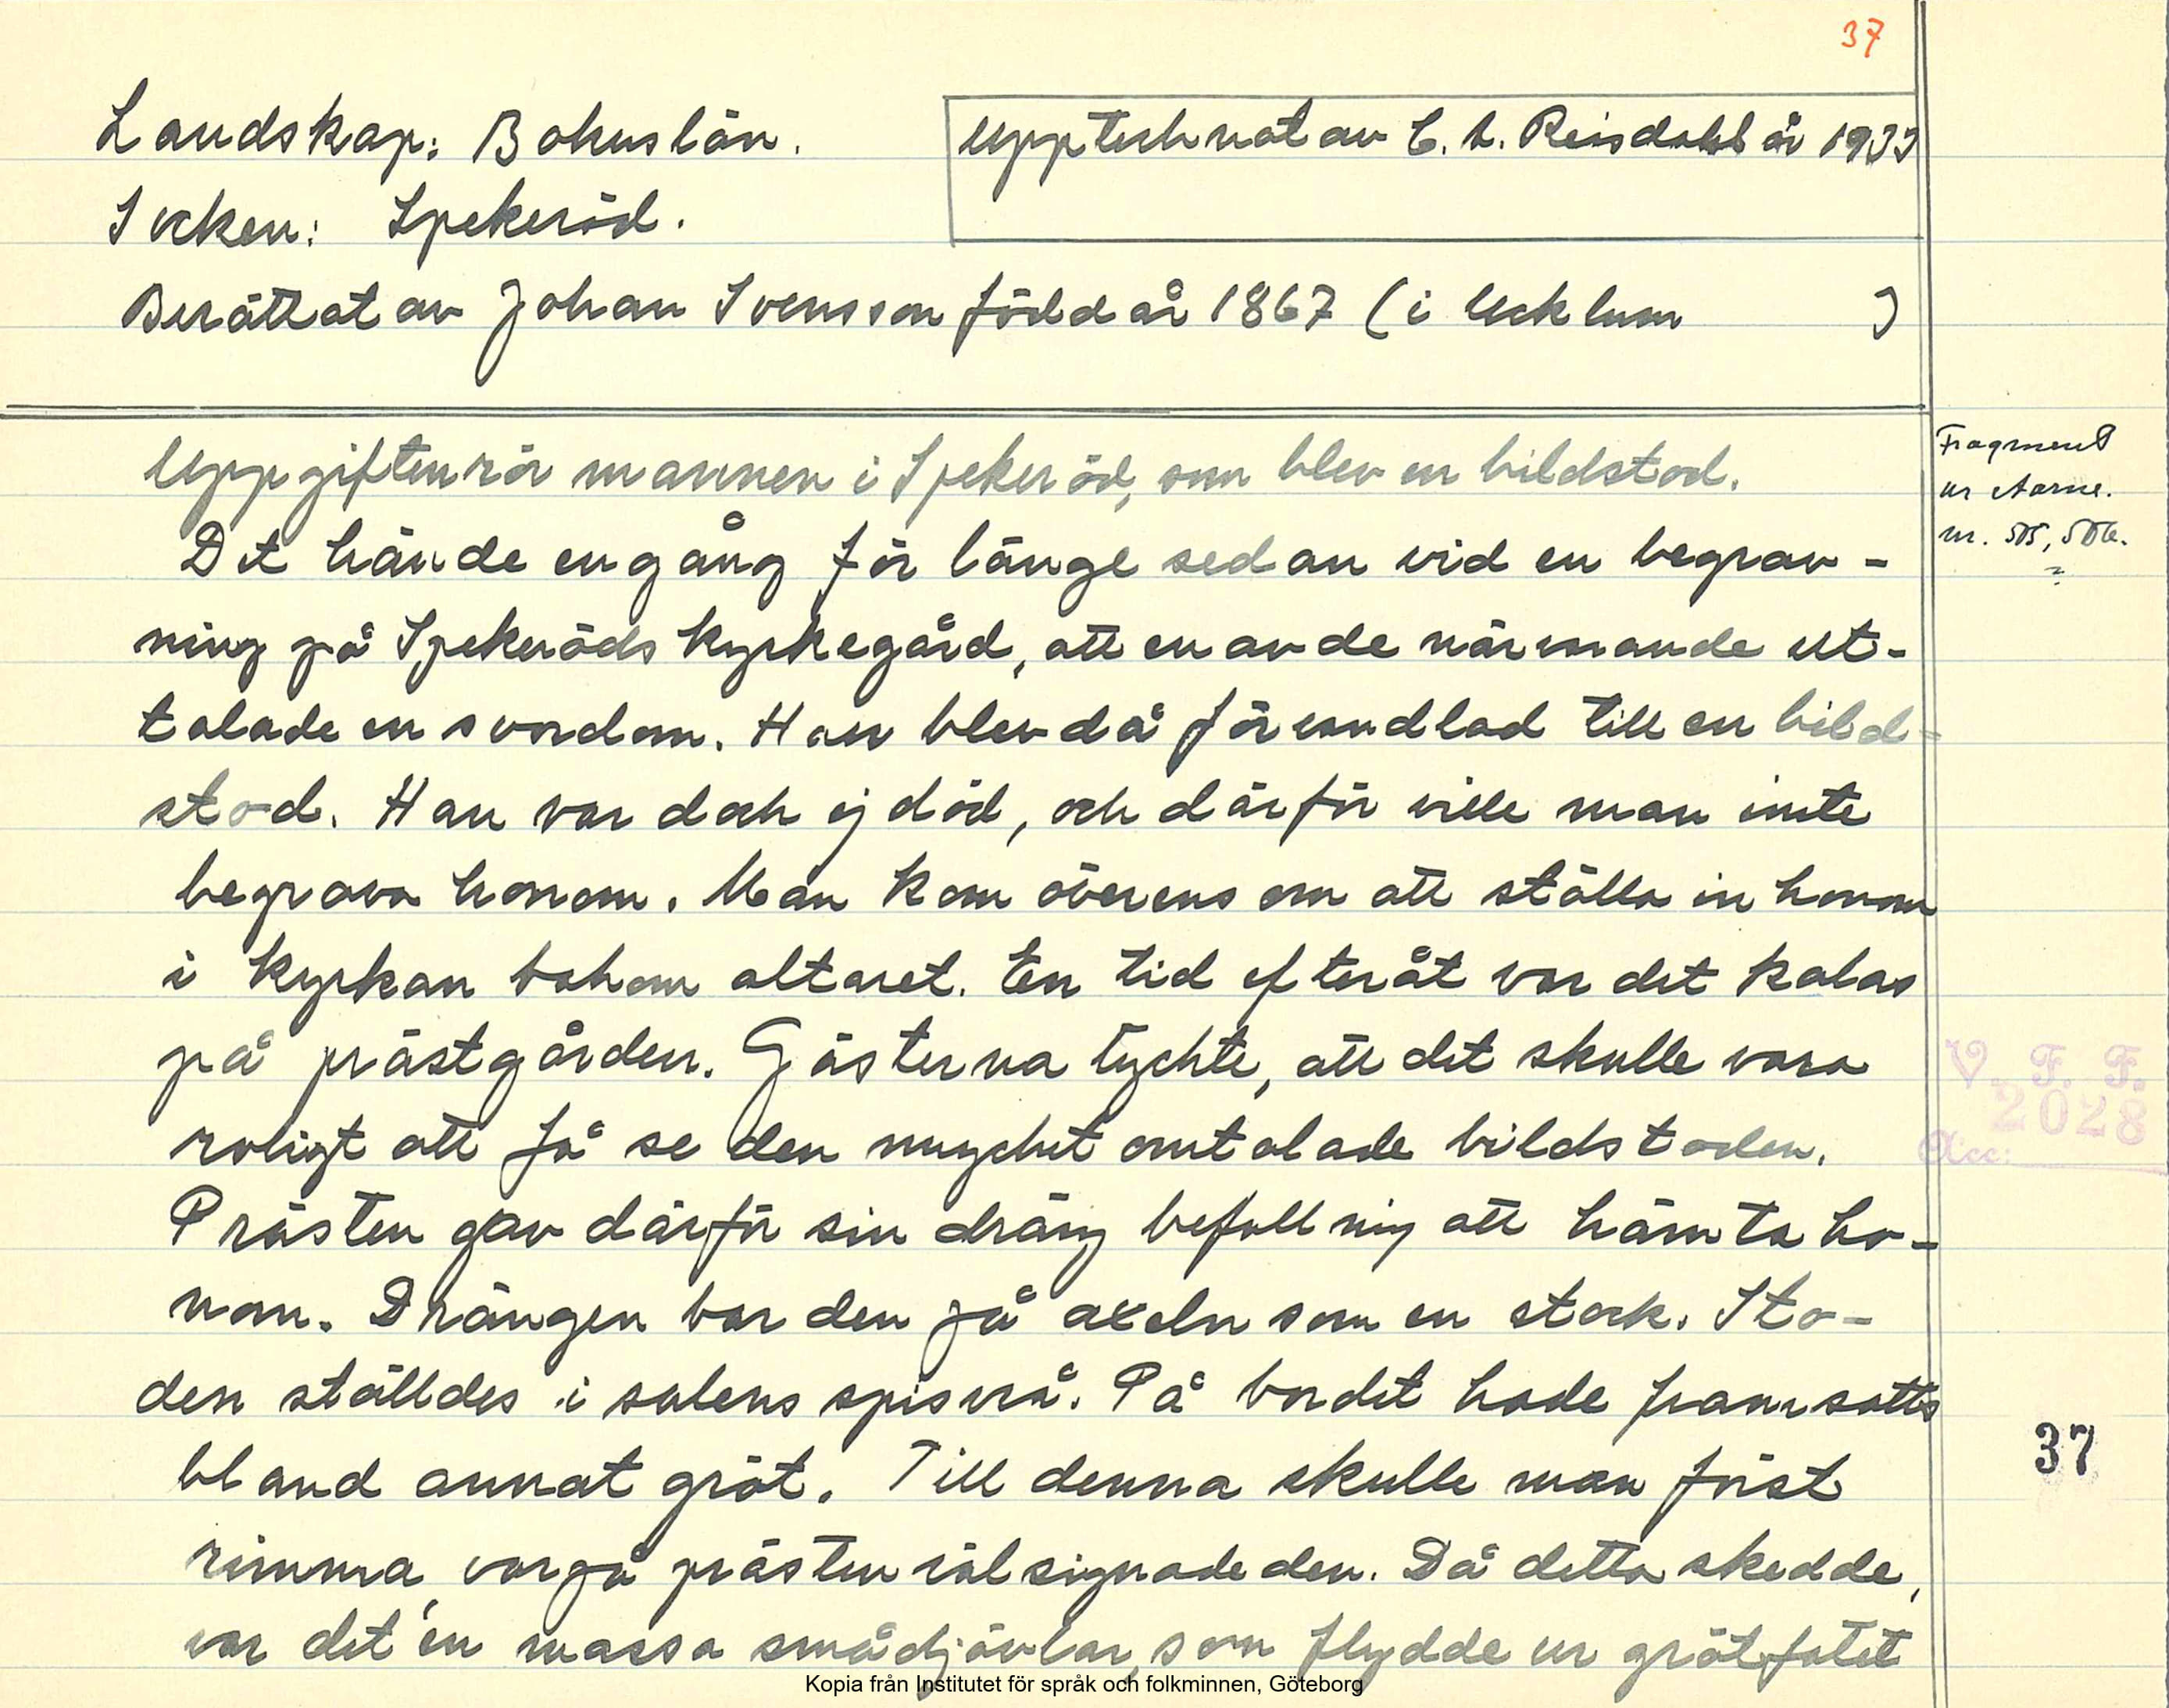 37
Landskap: Bohuslän.
Upptecknat av C. L. Reisdahl år 1933
Socken: Spekeröd.
Berättat av Johan Svensson född år 1867 (i Ucklum )
Uppgiften rör mannen i Spekeröd, som blev en bildstod.
Fragment
ur Aarne.
nr. 505, 506.
?
Det hände en gång för länge sedan vid en begrav-
ning på Spekeröds kyrkegård, att en av de närvarande ut-
talade en svordom. Han blev då förvandlad till en bild-
stod. Han var dock ej död, och därför ville man inte
begrava honom. Man kom överens om att ställa in honom
i kyrkan bakom altaret. En tid efteråt var det kalas
på prästgården. Gästerna tyckte, att det skulle vara
roligt att få se den mycket omtalade bildstoden.
Prästen gav därför sin dräng befallning att hämta ho-
nom. Drängen bar den på axeln som en stock. Sto-
den ställdes i salens spisvrå. På bordet hade framsatts
bland annat gröt. Till denna skulle man först
rimma, varpå prästen välsignade den. Då detta skedde,
var det en massa smådjävlar, som flydde ur grötfatet
V. F. F.
2028
Acc:
37
Kopia från Institutet för språk och folkminnen, Göteborg